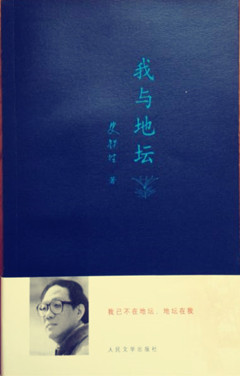 我与地坛
史铁生
著
我已不在地坛，地坛在我
人民文学出版社